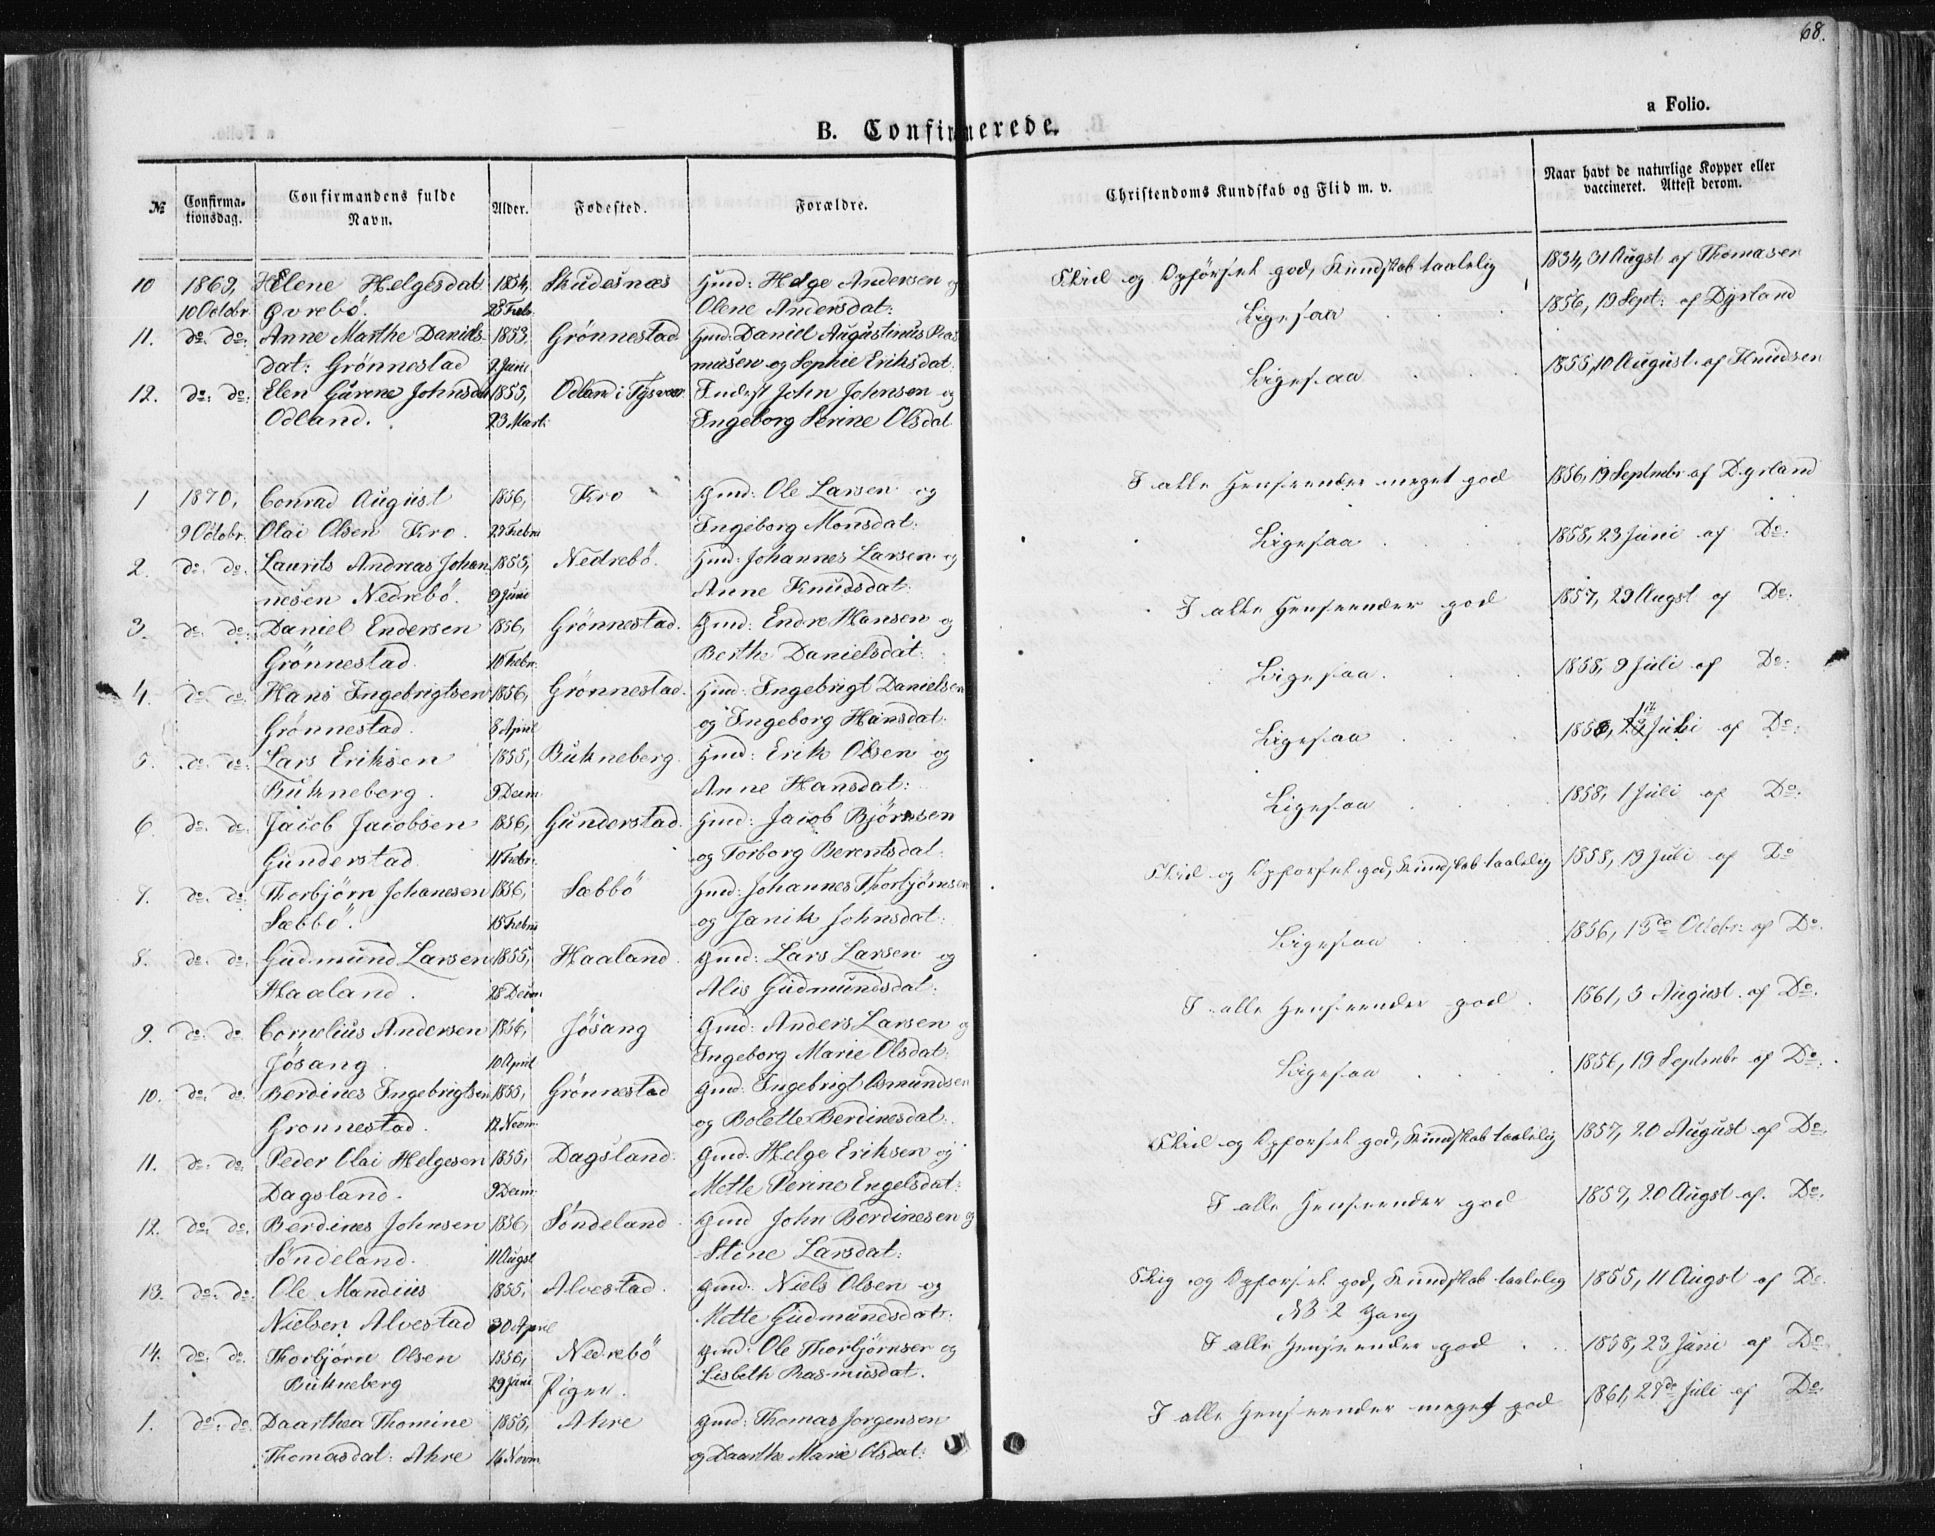 68.
a Folio.
B. Confirmerede.
№
Confirma-
tionsdag.
Confirmandens fulde
Navn.
Alder.
Fødested.
Forældre.
Christendoms Kundskab og Flid m. v.
Naar havt de naturlige Kopper eller
vaccineret. Attest derom.
10 1869, Helene Helgesdat: 1854, Skudesnæs Gmd: Helge Andersen og Flid og Opførsel god, Kundskab taalelig 1834, 31 Augst af Thomasen
10 Octobr. Qvrebö. 28 Feb. Olene Andersdat:
11. do. do: Anne Marthe Daniels- 1853, Grönnestad Gmd: Daniel Augustinus Ras- Ligesaa 1856, 19 Sept: af Dyrland
dat: Grönnestad 2 Juni musen og Sophie Eriksdat:
12. do: do: Elen Gurene Johnsdat 1855, Odland i Tysvær Inderst John Johnsen og Ligesaa 1855, 10 August af Knudsen
Odland. 23 Mart: Ingeborg Serine Olsdat
1 1870, Conrad August 1856, Kro Gmd: Ole Larsen og I alle Henseender meget god 1856, 19 Septmbr af Dyrland
9 Octobr. Olai Olsen Kro. Febru Ingeborg Monsdat:
2. do. do. Laurits Andreas Johan 1855, Nedrebö. Gmd: Johannes Larsen og Ligesaa 1858, 23 Juni af Do:
nesen Nedrebö. 9 Juni Anne Knudsdat:
3. do. do: Daniel Endersen 1856, Grönnestad. Gmd: Endre Hansen og I alle Henseender god 1857, 29 Augst af Do:
Grönnestad. 10 Febr. Berthe Danielsdat:
4. do do: Hans Ingebrigtsen 1856, Grönnestad. Gmd: Ingebrigt Danielsen Ligesaa. 1858, 9 Juli af Do:
Grönnestad. 8 April og Ingeborg Hansdat:
5. do. do: Lars Eriksen 1855, Bukneberg. Gmd: Erik Olsen og Ligesaa Juli af Do:
Bukneberg. 9 Decm Anne Hansdat:
6. do: do: Jacob Jacobsen 1856, Gunderstad. Gmd: Jacob Björnsen Ligesaa 1858, 1 Juli af Do:
Gunderstad. 11 Febr. og Torborg Berentsdat.
7. do. do. Thorbjörn Johanesen 1856, Sæbbö Gmd: Johannes Thorbjörnsen Flid og Opførsel god, Kundskab taalelig 1858, 19 Juli af Do
Sæbbö. 15 Febru og Janik Johnsdat:
8. do. do: Gudmund Larsen 1855, Haaland. Gmd: Lars Larsen og Ligesaa 1856, 13de Octobr: af Do.
Haaland. 28 Decm Alis Gudmundsdat:
9. do: do. Cornelius Andersen 1856, Jösang Gmd: Anders Larsen og I alle Henseender god. 1861, 5 August. af Do.
Jösang. 10 April Ingeborg Marie Olsdat:
10. do: do. Berdines Ingebrigtsen 1855, Grönnestad Gmd: Ingebrigt Osmundsen Ligesaa 1856, 19 Septmbr af Do:
Gronnestad. 12 Novm og Bolette Berdinesdat:
11. do: do: Peder Olai Helgesen 1855, Dagsland: Gmd: Helge Eriksen og Flid og Opførsel god, Kundskab taalelig 1857, 20 August af Do:
Dagsland. 9 Decm: Mette Serine Engelsdat:
12. do: do: Berdines Johnsen 1856, Söndeland. Gmd John Berdinesen og I alle Henseender god 1857, 20 Augst af Do.
Söndeland. 11 Augst Stine Larsdat:
13. do: do: Ole Mandius 1855, Alvestad. Gmd: Niels Olsen og Flig og Opførsel god, Kundskab taalelig 1855, 11 Augst af Do.
Nielsen Alvestad 30 April Mette Gudmundsdat: NB 2 Gang
14. do: do. Thorbjørn Olsen 1856, Nedrebö Gmd: Ole Thorbjørnsen og I alle Henseender god 1858, 23 Juni af Do
Bukneberg 29 Juni Lisbeth Rasmusdat.
Piger.
1. do: do: Daarthea Thomine 1855, Ahre Gmd: Thomas Jorgensen I alle Henseender meget god 1861, 27de Juli af Do:
Thomasdat: Ahre 16 Novm. og Daarthe Marie Olsdat: